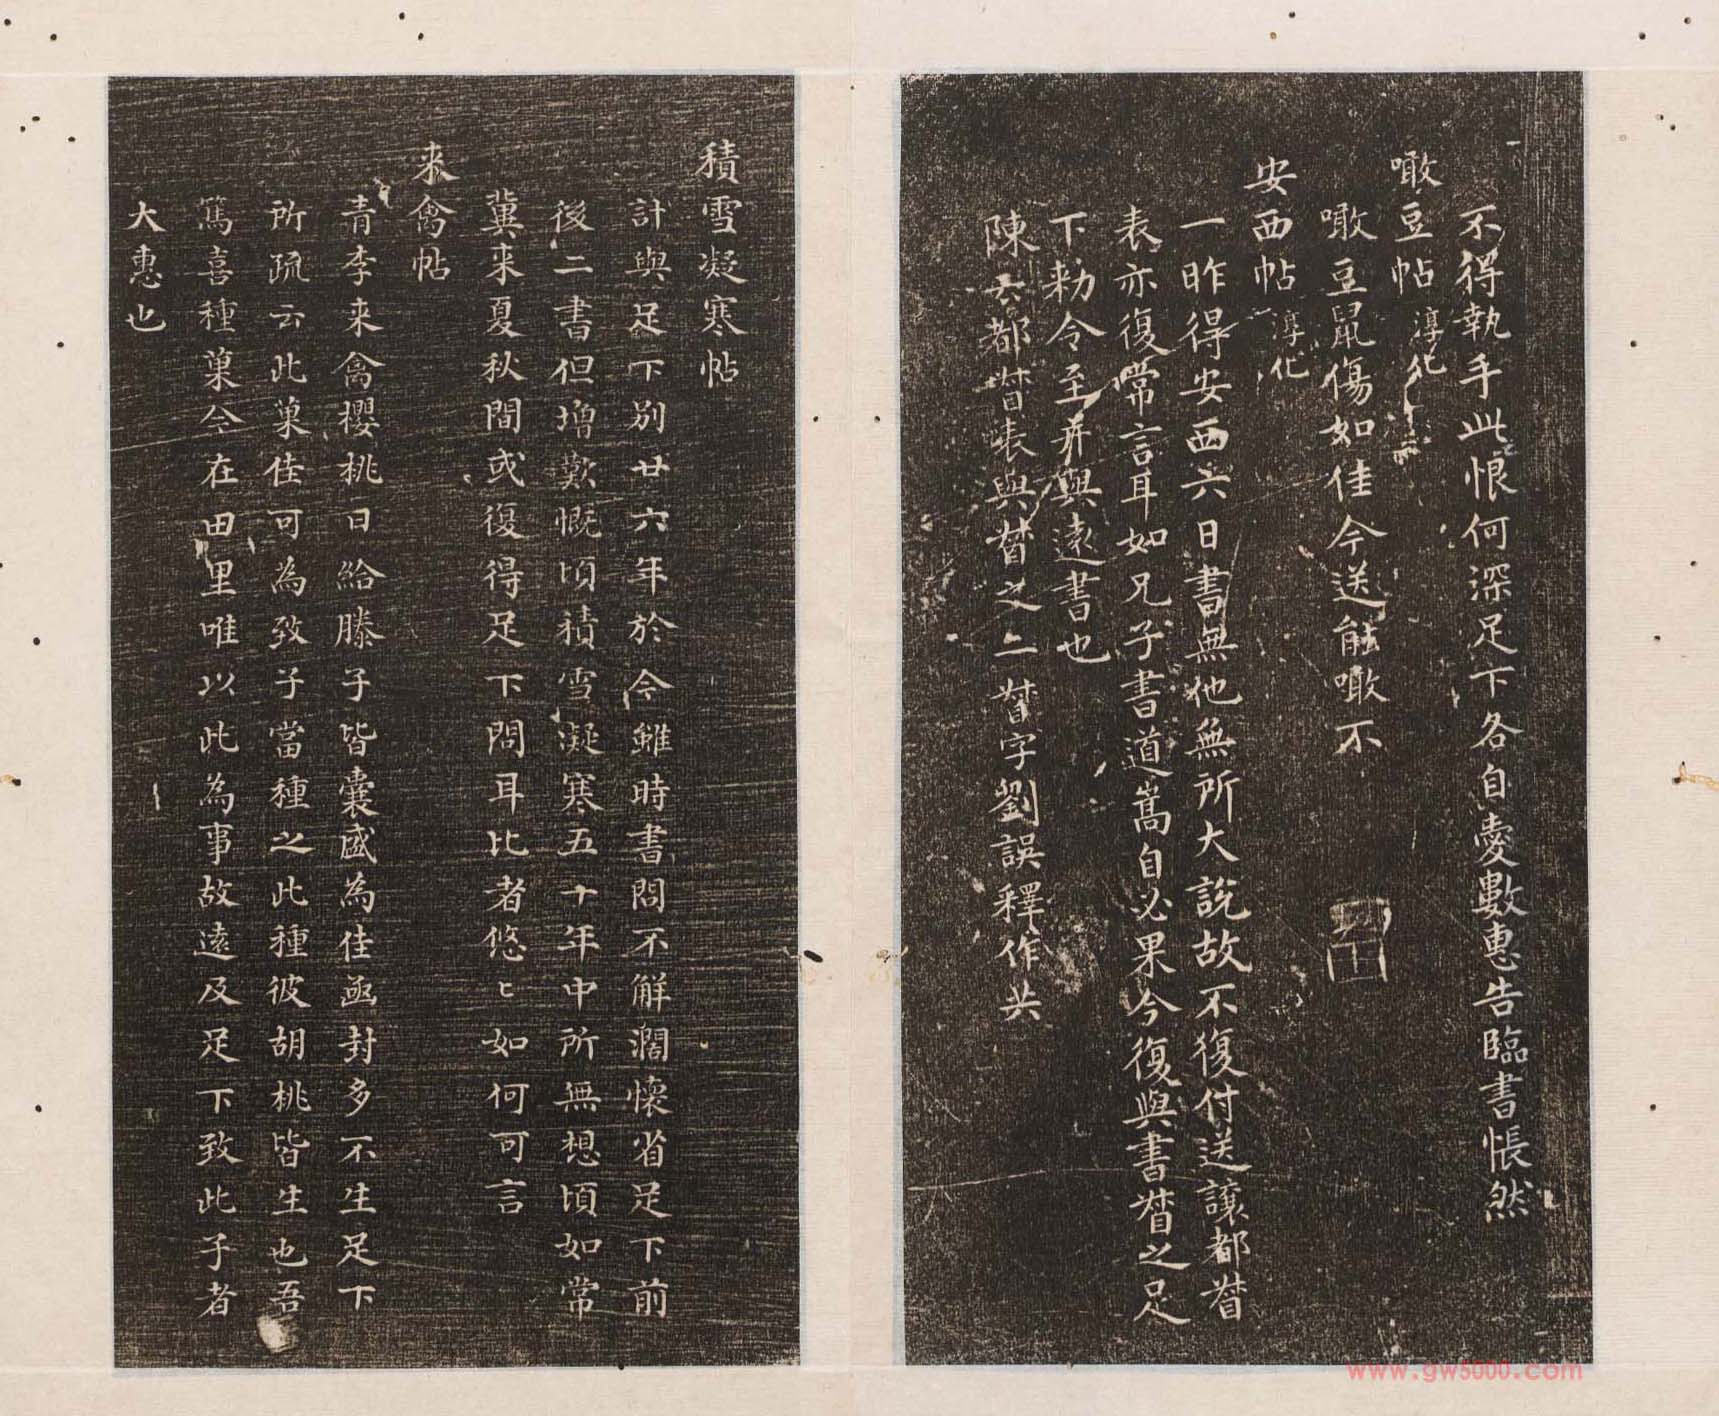 不得執手此恨何深足下各自愛數惠告臨書悵然
噉豆帖 淳化
噉豆鼠傷如佳今送能噉不
安西帖 淳化
一昨得安西六日書無他無所大說故不復付送讓都督
表亦復常言耳如兄子書道嵩自必果今復與書督之足
下勑令至并與遠書也
陳云都督表與督之二督字劉誤釋作共
積雪凝寒帖
計與足下別廿六年於今雖時書問不解濶懷省足下前
後二書但增歎慨頃積雪凝寒五十年中所無想頃如常
冀来夏秋間或復得足下問耳比者悠〻如何可言
来禽帖
青李来禽櫻桃日給滕子皆囊盛為佳函封多不生足下
所疏云此菓佳可為致子當種之此種彼胡桃皆生也吾
篤喜種菓今在田里唯以此為事故遠及足下致此子者
大惠也
www.gw5000.com